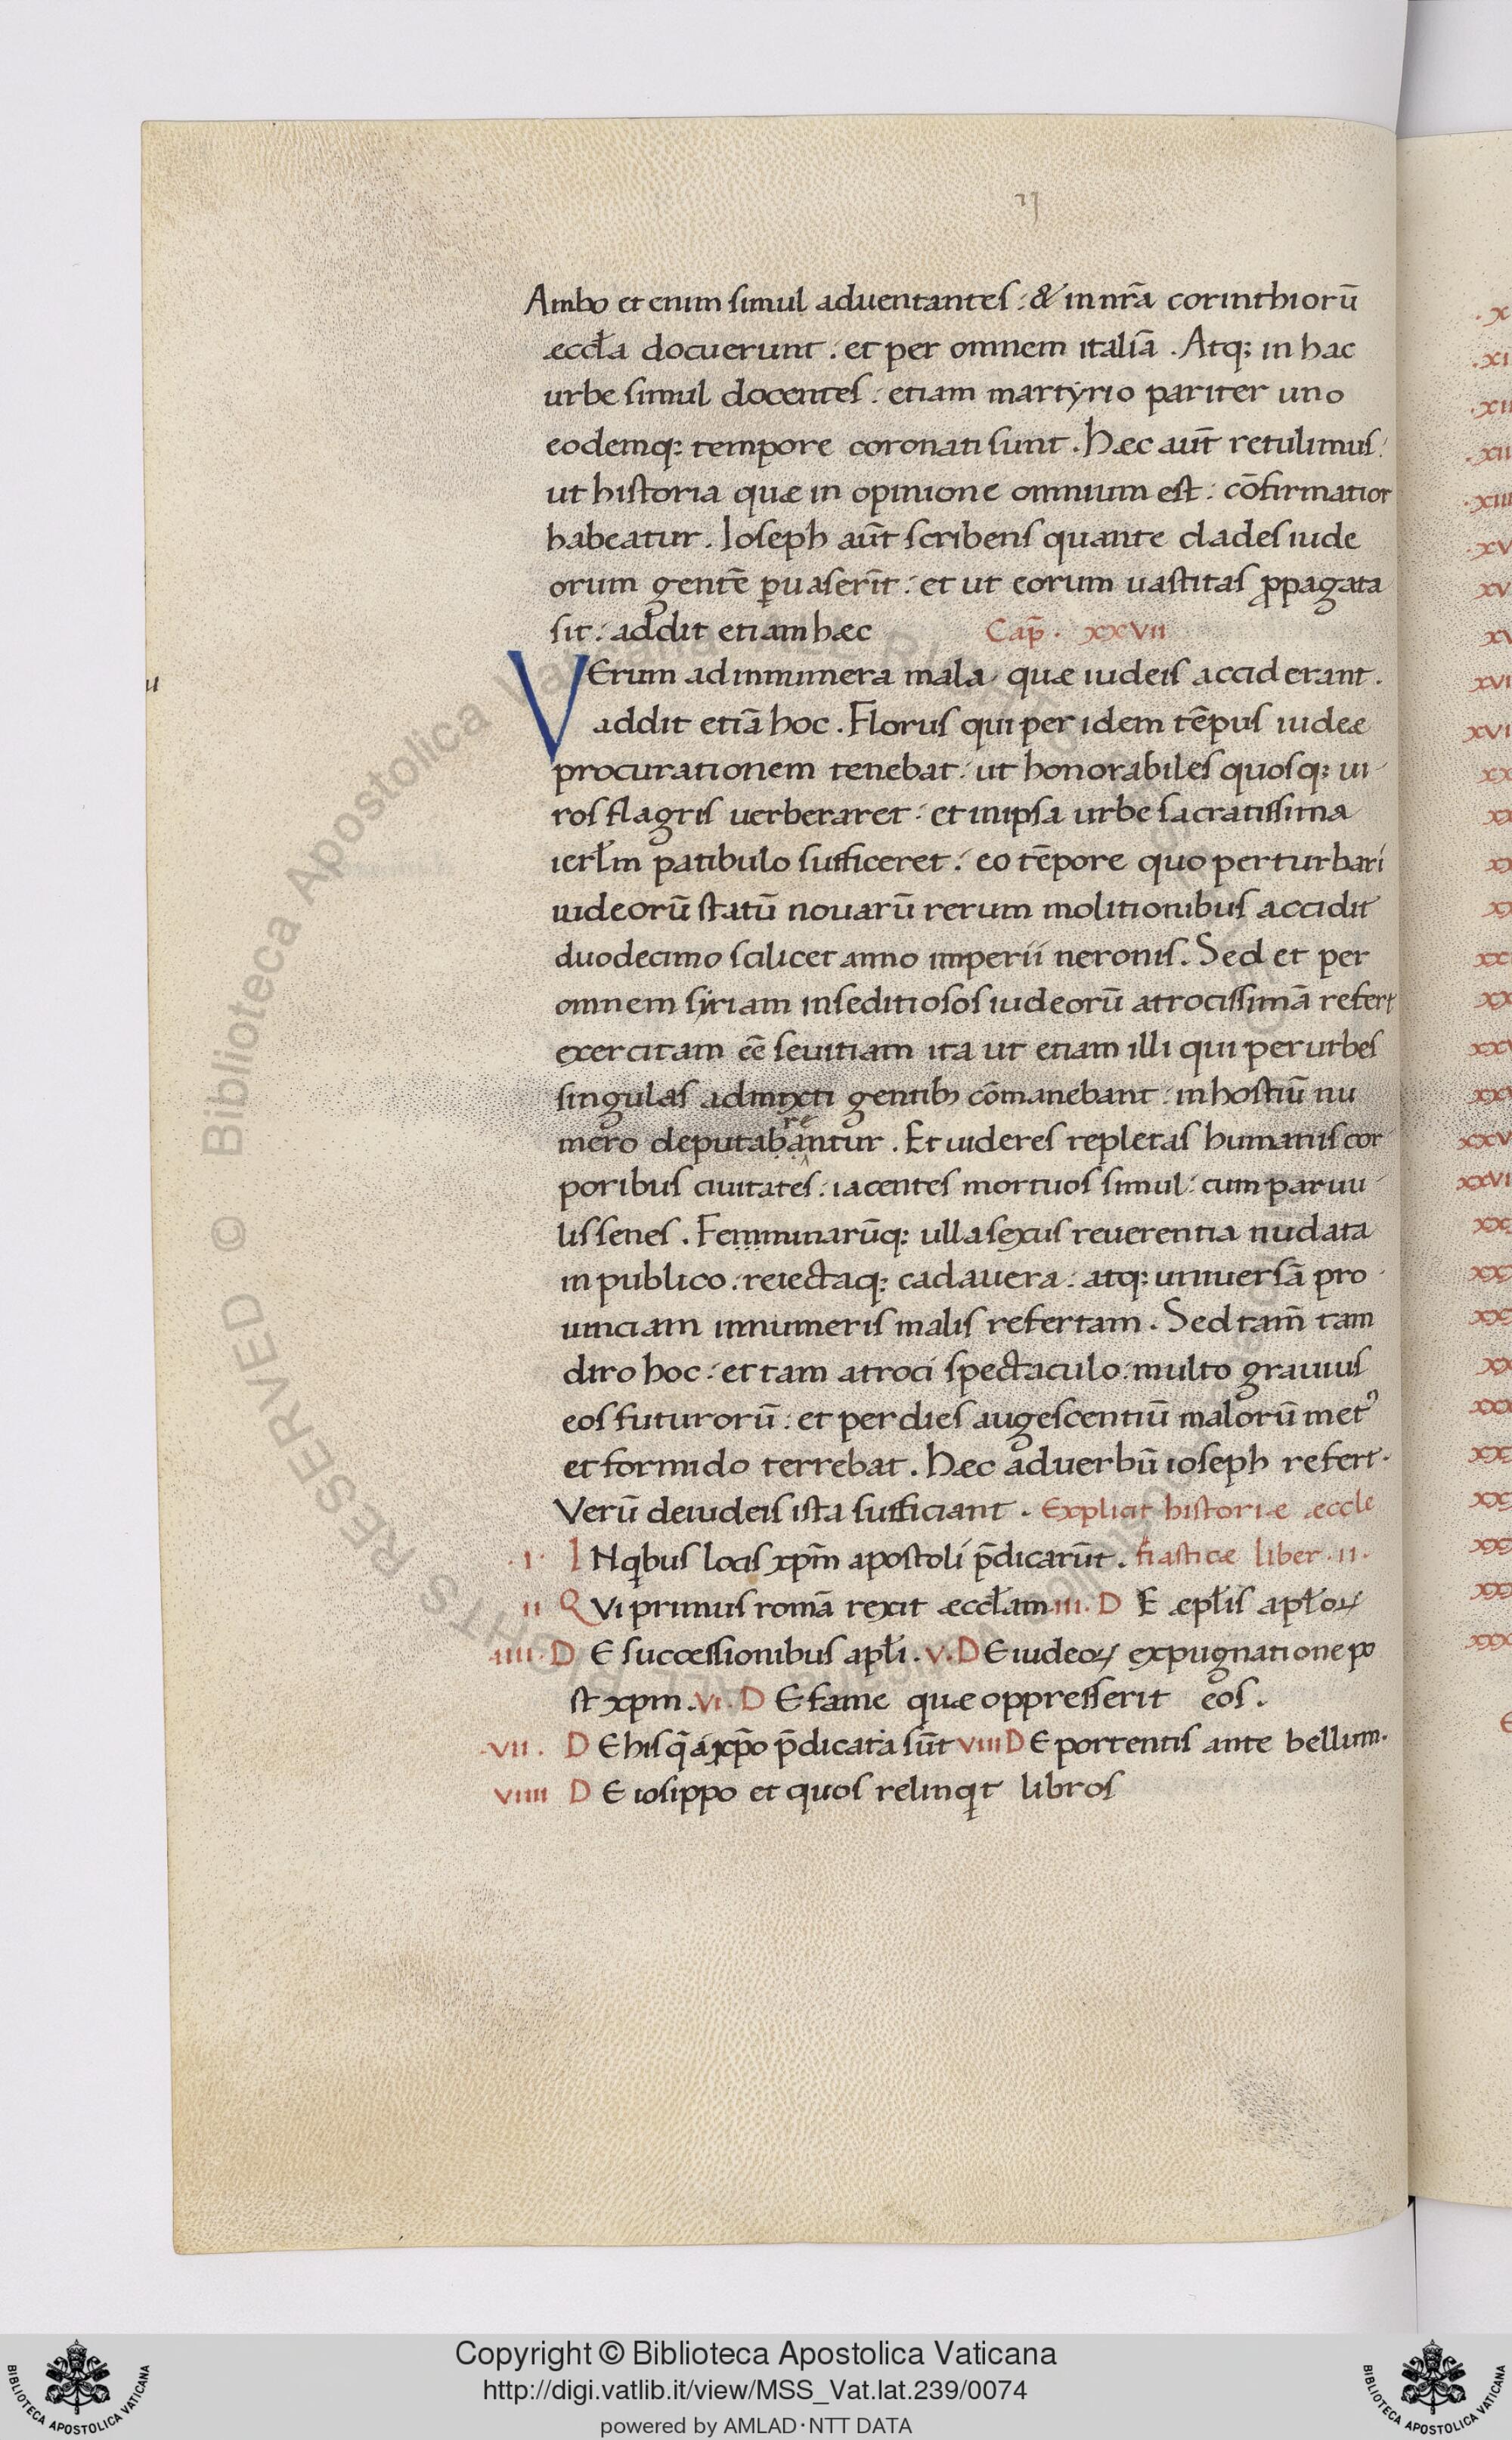 ıȷ
Ambo et enim simul aduentantes : & in nr̄a corinthiorū
æccl̄a docuerunt : et per omnem italiā . Atq; in hac
urbe simul docentes : etiam martyrio pariter uno
eodemq; tempore coronati sunt . hæc aut̄ retulimus :
ut historia quæ in opinione omnium est : cōfirmatior
habeatur . Ioseph aut̄ scribens quante clades iude
orum gentē ꝑuaserīt : et ut eorum uastitas ꝓpagata
sit : addit etiam hæc Cap̄ . xxvii
VErum ad innumera mala quæ iudeis acciderant .
addit etiā hoc . Florus qui per idem tēpus iudeæ
procurationem tenebat : ut honorabiles quosq; ui
ros flagris uerberaret : et in ipsa urbe sacratissima
ierl̄m patibulo sufficeret : eo tēpore quo perturbari
iudeorū statū nouarū rerum molitionibus accidit
duodecimo scilicet anno imperii neronis . Sed et per
omnem syriam in seditiosos iudeorū atrocissimā refert
exercitam eē seuitiam ita ut etiam illi qui per urbes
singulas admixti gentib; cōmanebant : in hostiū nu
re
mero deputabantur . Et uideres repletas humanis cor
poribus ciuitates : iacentes mortuos simul : cum paruu
lis senes . Femminarūq; ulla sexus reuerentia nudata
in publico : reiectaq; cadauera : atq; uniuersā pro
uinciam innumeris malis refertam . Sed tam̄ tam
diro hoc : et tam atroci spectaculo : multo grauius
eos futurorū : et per dies augescentiū malorū metꝰ
et formido terrebat . hæc ad uerbū ioseph refert .
Verū de iudeis ista sufficiant . Explicit historiæ æccle
. I . INq̇bus locis xp̄m apostoli p̄dicarūt . siasticæ liber . II .
II QVi primus romā rexit æccl̄am . III . D E æpl̄is apl̄oꝝ
. IIII . D E successionibus apl̄i . V . D E iudeoꝝ expugnatione po
st xpm . VI . D E fame quæ oppresserit eos .
. VII . D E his q̄ a xp̄o p̄dicata sūt VIII D E portentis ante bellum .
VIIII D E iosippo et quos relinq̇t libros
Copyright © Biblioteca Apostolica Vaticana
http://digi.vatlib.it/view/MSS_Vat.lat.239/0074
powered by AMLAD·NTT DATA